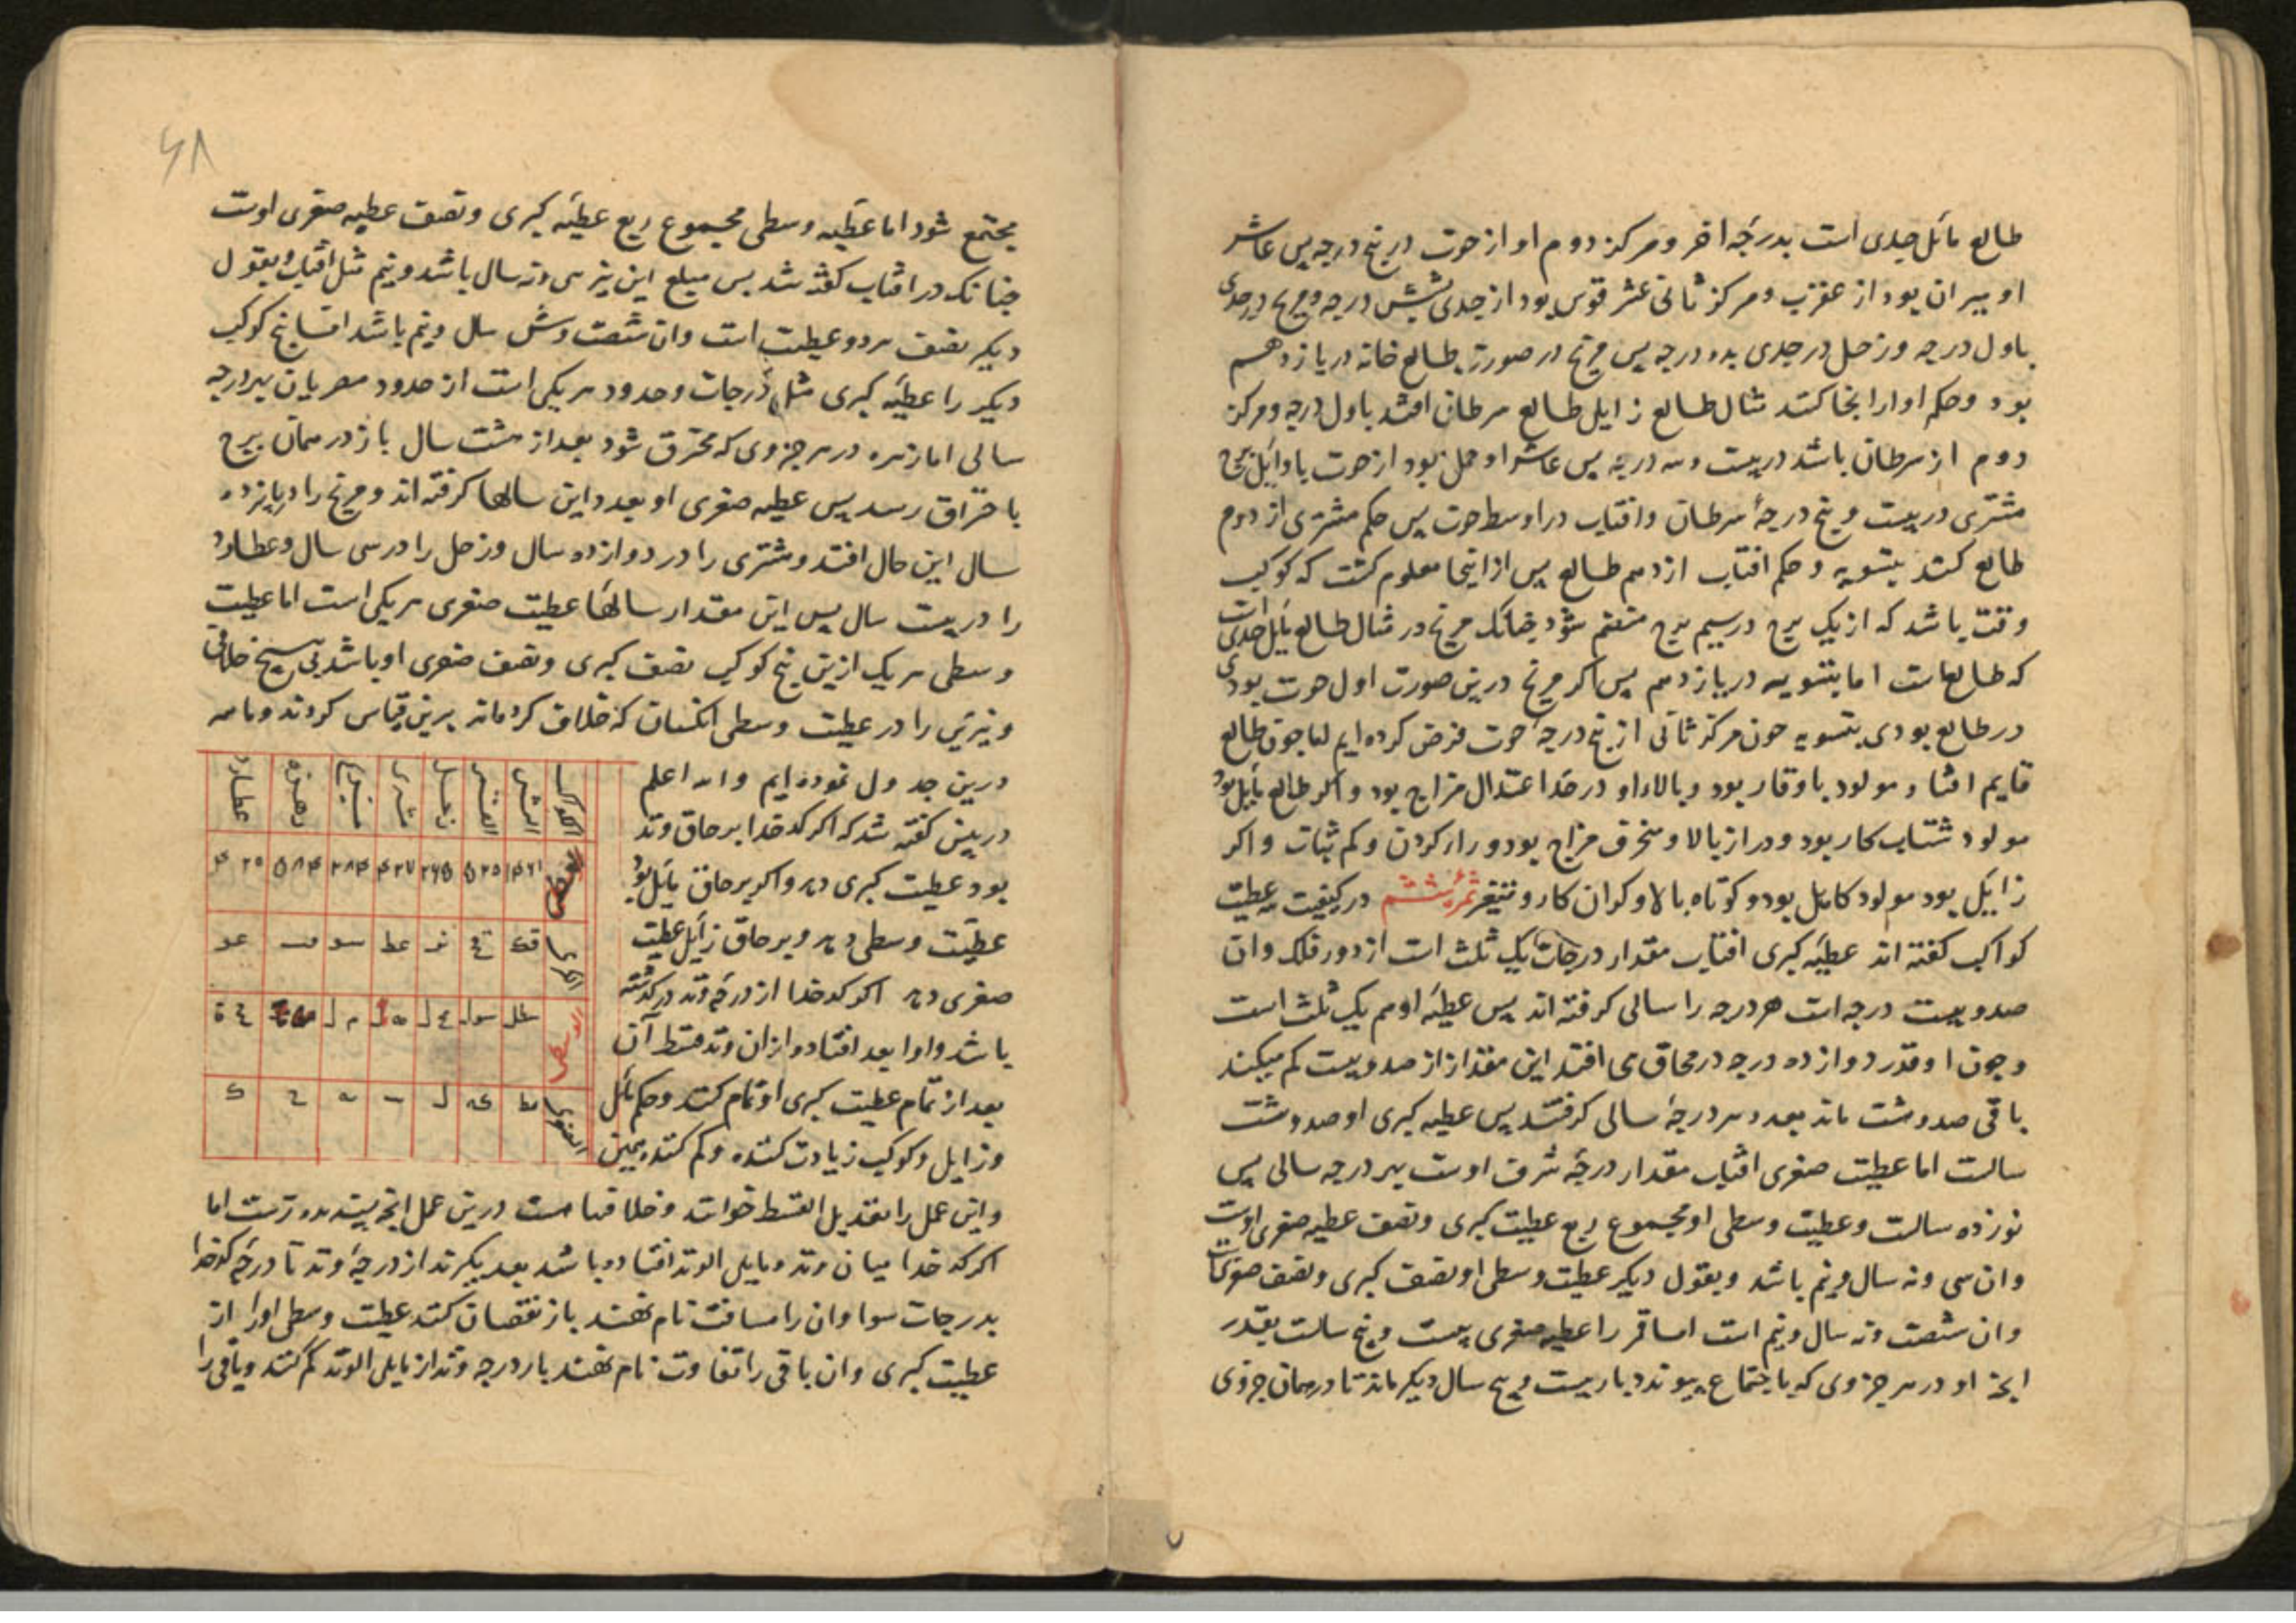 طالع مائل جدی است بدرجه اخر و مرکز دوم او از حوت در پنج درجه پس عاشر
او میزان بود از عقرب و مرکز ثانی عشر قوس بود از جدی بشش درجه و مریخ در جدی
باول درجه و زحل در جدی بده درجه پس مریخ در صورت طالع خانه در یازدهم
بود و حکم او از انجا کنند مثال طالع زایل طالع سرطان افتد باول درجه و مرکز
دوم از سرطان باشد در بیست و سه درجه پس عاشر او حمل بود از حوت باوایل برج
مشتری در بیست و پنج درجهٔ سرطان و افتاب در اوسط حوت پس حکم مشتری از دوم
طالع کنند بتسویه و حکم افتاب از دهم طالع پس از اینجا معلوم کشت که کوکب
وقت باشد که از یک برج در سیم برج منتقم شود چنانک مریخ در مثال طالع مایل جدی است
که طالعست اما بتسویه در یازدهم پس اکر مریخ درین صورت اول حوت بودی
در طالع بودی بتسویه چون مرکز ثانی از پنج درجهٔ حوت فرض کرده ایم اما چون طالع
قایم افتاد مولود باوقار بود و بالاء او در حد اعتدال مزاج بود و اکر طالع مایل بود
مولود شتاب کار بود و دراز بالا و منحرف مزاج بود و کردن و کم ثبات و اکر
زایل بود مولود کاهل بود و کوتاه بالا و کران کار و ثمرهٔ ششم در کیفیت عطیت
کواکب کفته اند عطیهٔ کبری افتاب مقدار درجات یک ثلث است از دور فلک و ان
صد و بیست درجه است هر درجه را سالی کرفته اند پس عطیهٔ او هم یک ثلث است
و چون او قدر دوازده درجه در محاق می افتد این مقدار از صد و بیست کم میکنند
باقی صد و هشت ماند بعدد هر درجهٔ سالی کرفتند پس عطیه کبری او صد و هشت
سالست اما عطیت صغری افتاب مقدار درجهٔ شرف اوست بهر درجه سالی پس
نوزده سالست و عطیت وسطی او مجموع ربع عطیت کبری و نصف عطیه صغری اوست
و ان سی و نه سال و نیم باشد و بقول دیکر عطیت وسطی او نصف کبری و نصف صغری است
و ان شصت و نه سال و نیم است اما قمر را عطیه صغری بیست و پنج سالست بقدر
انچ او در هر جزوی که باجتماع پیوندد بار بیست و پنج سال دیکر ماند تا در همان جزوی
۶۸
مجتمع شود اما عطیه وسطی مجموع ربع عطیهٔ کبری و نصف عطیه صغری اوست
چنانک در افتاب کفته شد پس مبلغ این نیز سی و نه سال باشد و نیم مثل افتاب و بقول
دیکر نصف هر دو عطیت است و ان شصت و شش سال و نیم باشد اما پنج کوکب
دیکر را عطیهٔ کبری مثل درجات و حدود هر یکی است از حدود مصریان بهر درجه
سالی اما زهره در هر جزوی که محترق شود بعد از هشت سال باز در همان برج
باحتراق رسد پس عطیه صغری او بعدد این سالها کرفته اند و مریخ را در پانزده
سال این حال افتد و مشتری را در دوازده سال و زحل را در سی سال و عطارد
را در بیست سال پس این مقدار سالها عطیت صغری هر یکی است اما عطیت
وسطی هر یک ازین پنج کوکب نصف کبری و نصف صغری او باشد بی هیچ خلافی
و نیرین را در عطیت وسطی انکسان که خلاف کرده اند برین قیاس کردند و ما همه
درین جدول نموده ایم والله اعلم
درپیش کفته شد که اکر کدخدا بر حاق وتد
بود عطیت کبری دهد و اکر بر حاق مایل بود
عطیت وسطی دهد و بر حاق زایل عطیت
صغری دهد اکر کدخدا از درجهٔ وتد در کذشته
باشد و او را بعد افتاده از ان وتد قسط آن
بعد از تمام عطیت کبری او تمام کنند و حکم مائل
و زایل و کوکب زیادت کننده و کم کننده همین
الکواکب الشمس القمر زحل مشتری مریخ زهره عطارد
و این عمل را تعدیل القسط خوانند و خلافها هست درین عمل انچ پسندیده ترست اما
اکر کدخدا میان وتد و مایلی الوتد افتاده باشد بعد بکیرند از درجهٔ وتد تا درجهٔ کدخدا
بدرجات سوا و ان را مسافت نام نهند باز نقصان کنند عطیت وسطی او را از
عطیت کبری و ان باقی را تفاوت نام نهند باز درجه وتد از مایلی الوتد کم کنند و باقی را